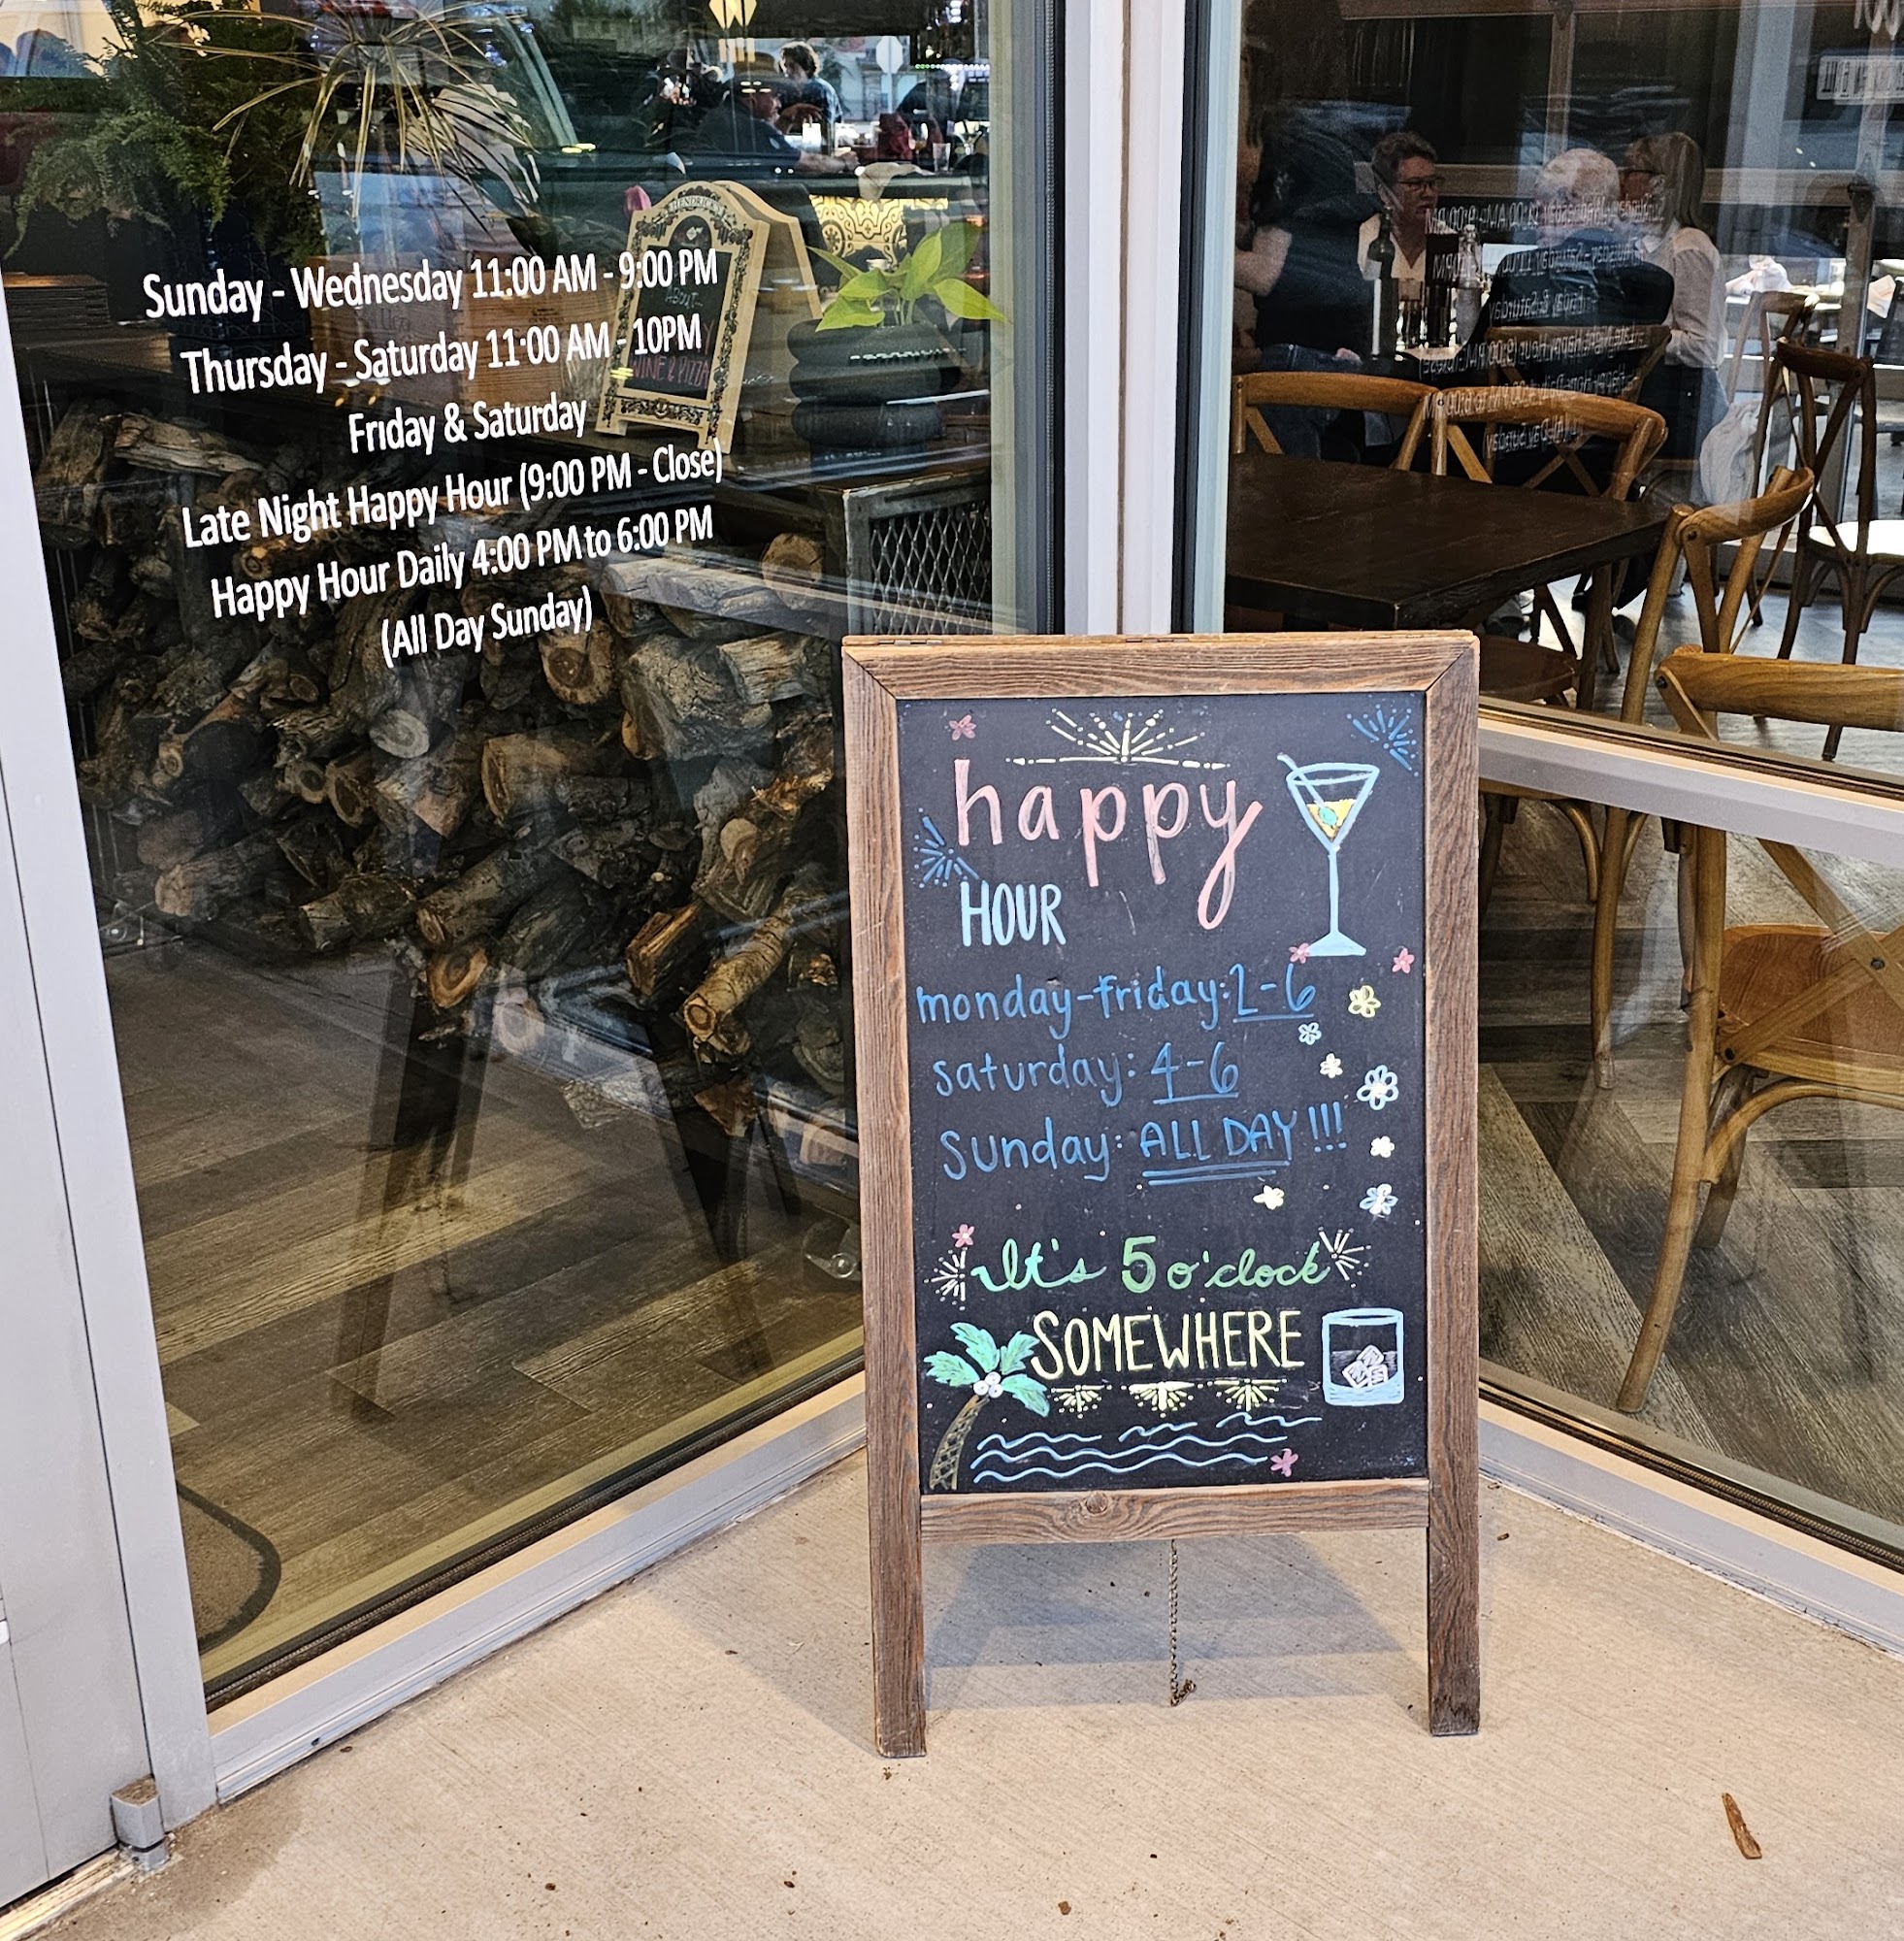 Sunday - Wednesday 11:00 AM - 9:00 PM
Thursday - Saturday 11:00 AM - 10PM
Friday & Saturday
Late Night Happy Hour (9:00 PM - Close)
Happy Hour Daily 4:00 PM to 6:00 PM
(All Day Sunday)
HENDRICK'S
ABOUT
WINE & PIZZA
happy
HOUR
monday-friday: 2-6
saturday: 4-6
sunday: ALL DAY!!!
It's 5 o'clock
SOMEWHERE